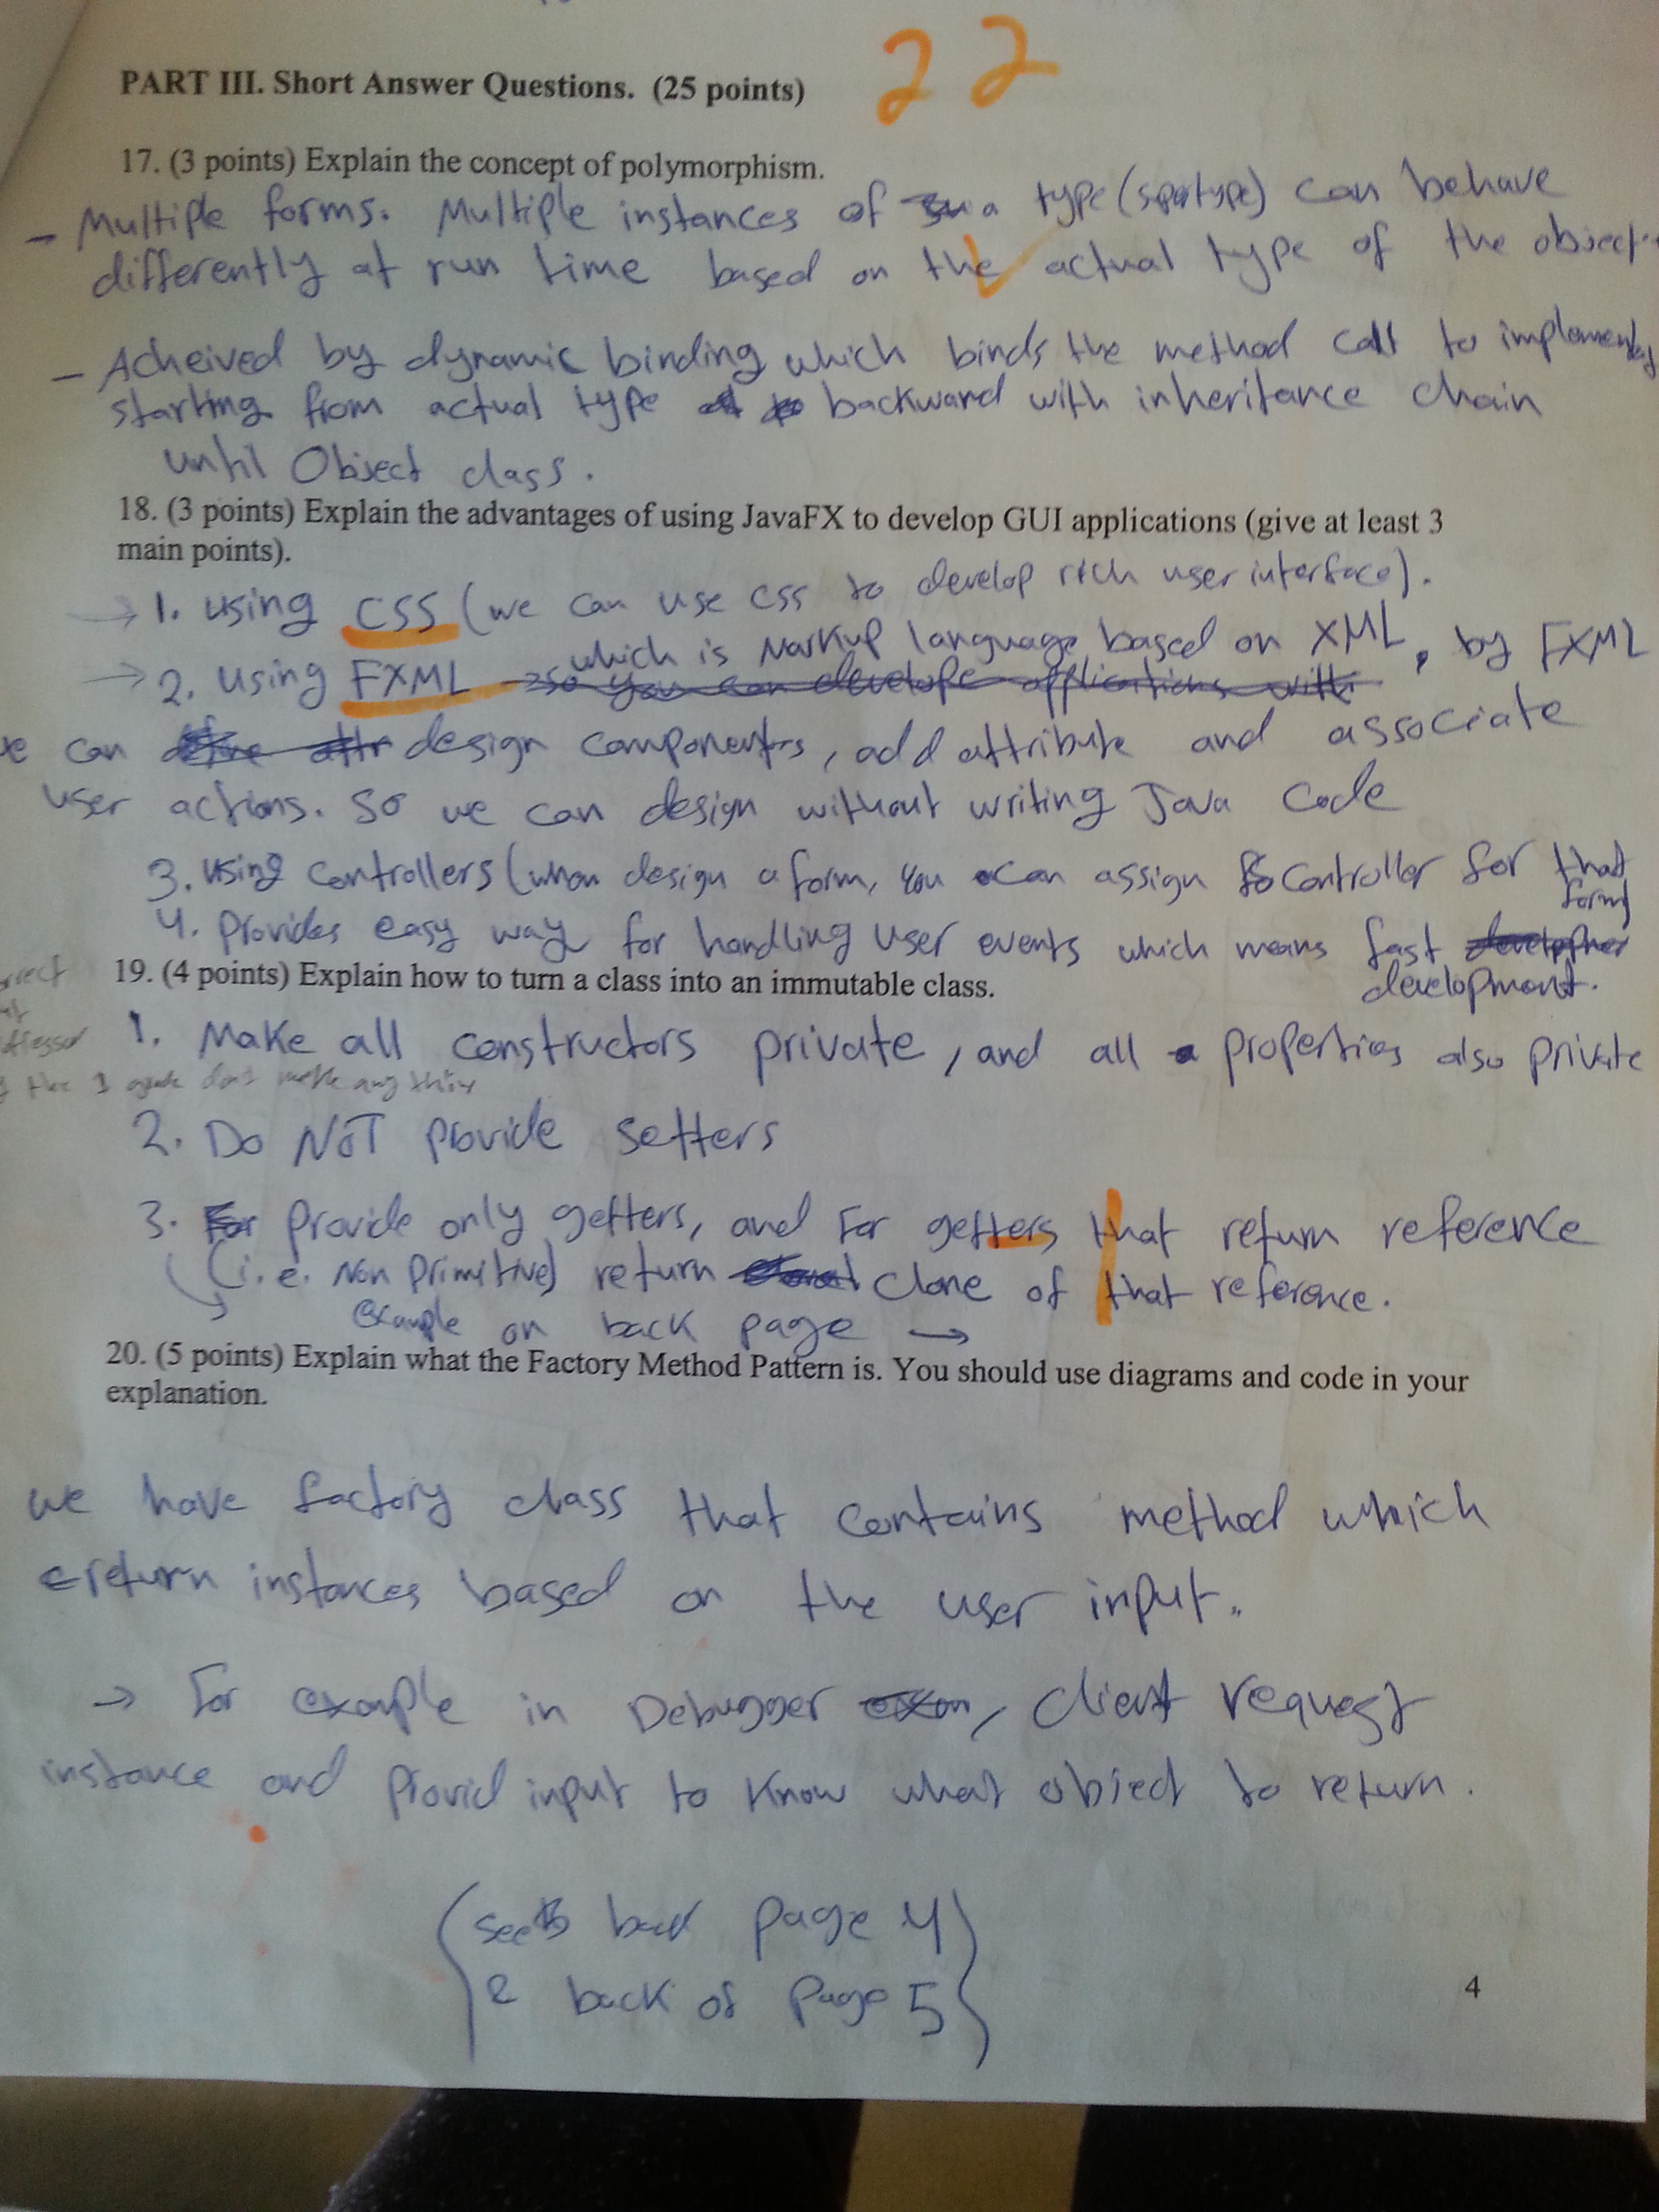 22
PART III. Short Answer Questions. (25 points)
17. (3 points) Explain the concept of polymorphism.
- Multiple forms. Multiple instances of a type (supertype) can behave
differently at run time based on the actual type of the object.
- Acheived by dynamic binding which binds the method call to
starting from actual type backward with inheritance chain
until Object class.
18. (3 points) Explain the advantages of using JavaFX to develop GUI applications (give at least 3
main points).
→ 1. using CSS (we can use css to develop rich user interface).
→ 2. using FXML which is Markup language based on XML, by FXML
can design components, add attribute and associate
user actions. So we can design without writing Java Code
3. using controllers (when design a form, you can assign controller for that
form)
4. Provides easy way for handling user events which means fast
development.
19. (4 points) Explain how to turn a class into an immutable class.
1. Make all constructors private, and all properties also private
2. Do NOT provide setters
3. Provide only getters, and for getters that return reference
(i.e. Non Primitive) return clone of that reference.
example on back page →
20. (5 points) Explain what the Factory Method Pattern is. You should use diagrams and code in your
explanation.
we have factory class that contains method which
return instances based on the user input.
→ For example in Debugger, client request
instance and Provid input to know what object to return.
(see back page 4
& back of page 5)
4